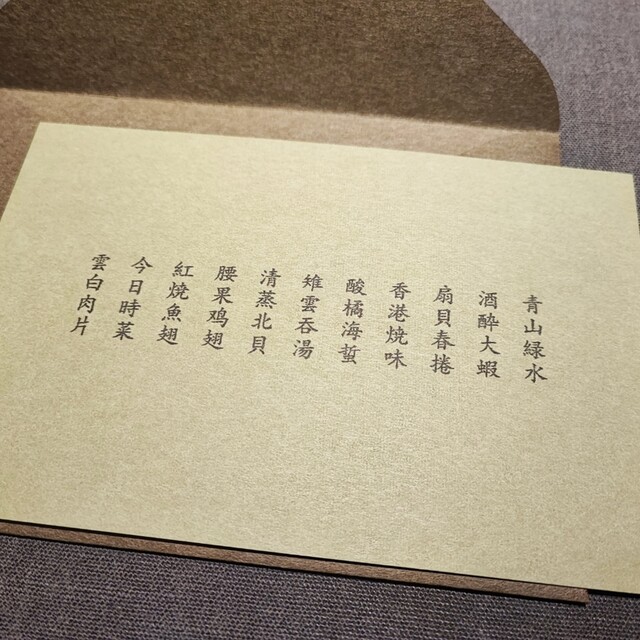 青山緑水
酒醉大蝦
扇貝春捲
香港焼味
酸橘海蜇
雉雲吞湯
清蒸北貝
腰果鸡翅
紅焼魚翅
今日時菜
雲白肉片